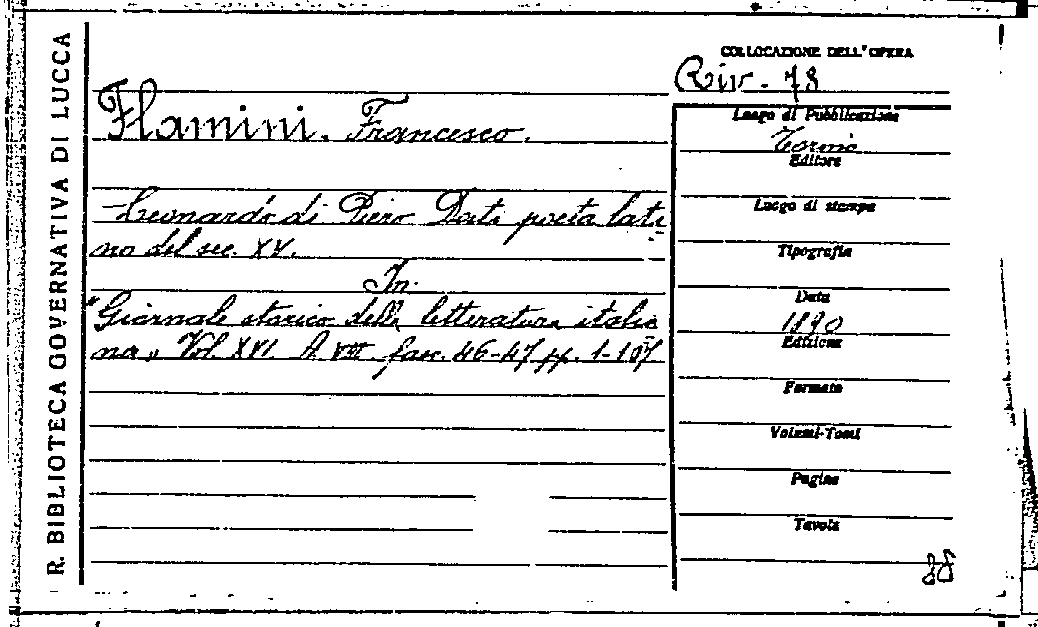 R. BIBLIOTECA GOVERNATIVA DI LUCCA
COLLOCAZIONE DELL'OPERA
Riv. 78
Flamini. Francesco.
Leonardo di Piero Dati poeta lati
no del sec. XV.
In.
"Giornale storico della letteratura italia
na„ Vol. XVI. A. VIII fasc. 46-47 pp. 1-107
Luogo di Pubblicazione
Torino
Editore
Luogo di stampa
Tipografia
Data
1890
Edizione
Formato
Volumi-Tomi
Pagine
Tavole